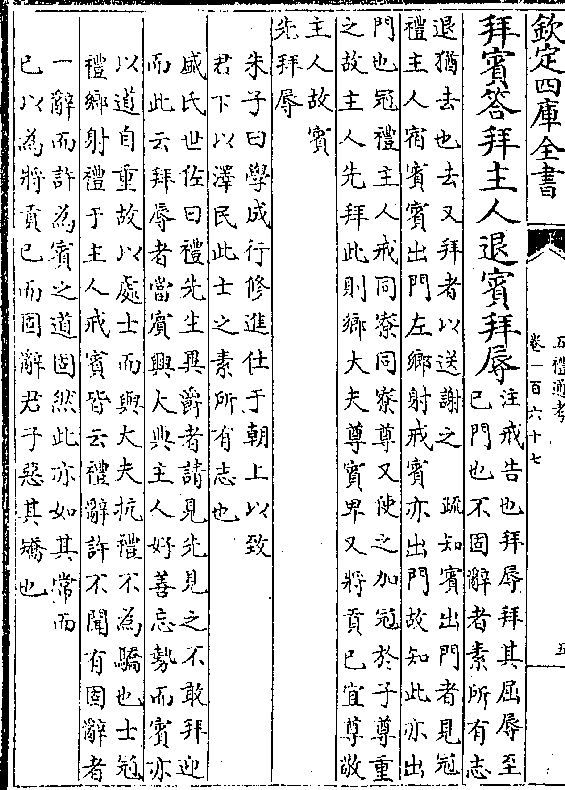 欽定四庫全書
五禮通考
卷一百六十七
五
拜賓答拜主人退賓拜辱
注戒告也拜辱拜其屈辱至
己門也不固辭者素所有志
退猶去也去又拜者以送謝之　疏知賓出門者見冠
禮主人宿賓賓出門左鄉射戒賓亦出門故知此亦出
門也冠禮主人戒同寮同寮尊又使之加冠於子尊重
之故主人先拜此則鄉大夫尊賓卑又將貢已宜尊敬
主人故賓
先拜辱
朱子曰學成行修進仕于朝上以致
君下以澤民此士之素所有志也
盛氏世佐曰禮先生異爵者請見先見之不敢拜迎
而此云拜辱者當賓興大典主人好善忘勢而賓亦
以道自重故以處士而與大夫抗禮不為驕也士冠
禮鄉射禮于主人戒賓皆云禮辭許不聞有固辭者
一辭而許為賓之道固然此亦如其常而
已以為將貢已而固辭君子惡其矯也